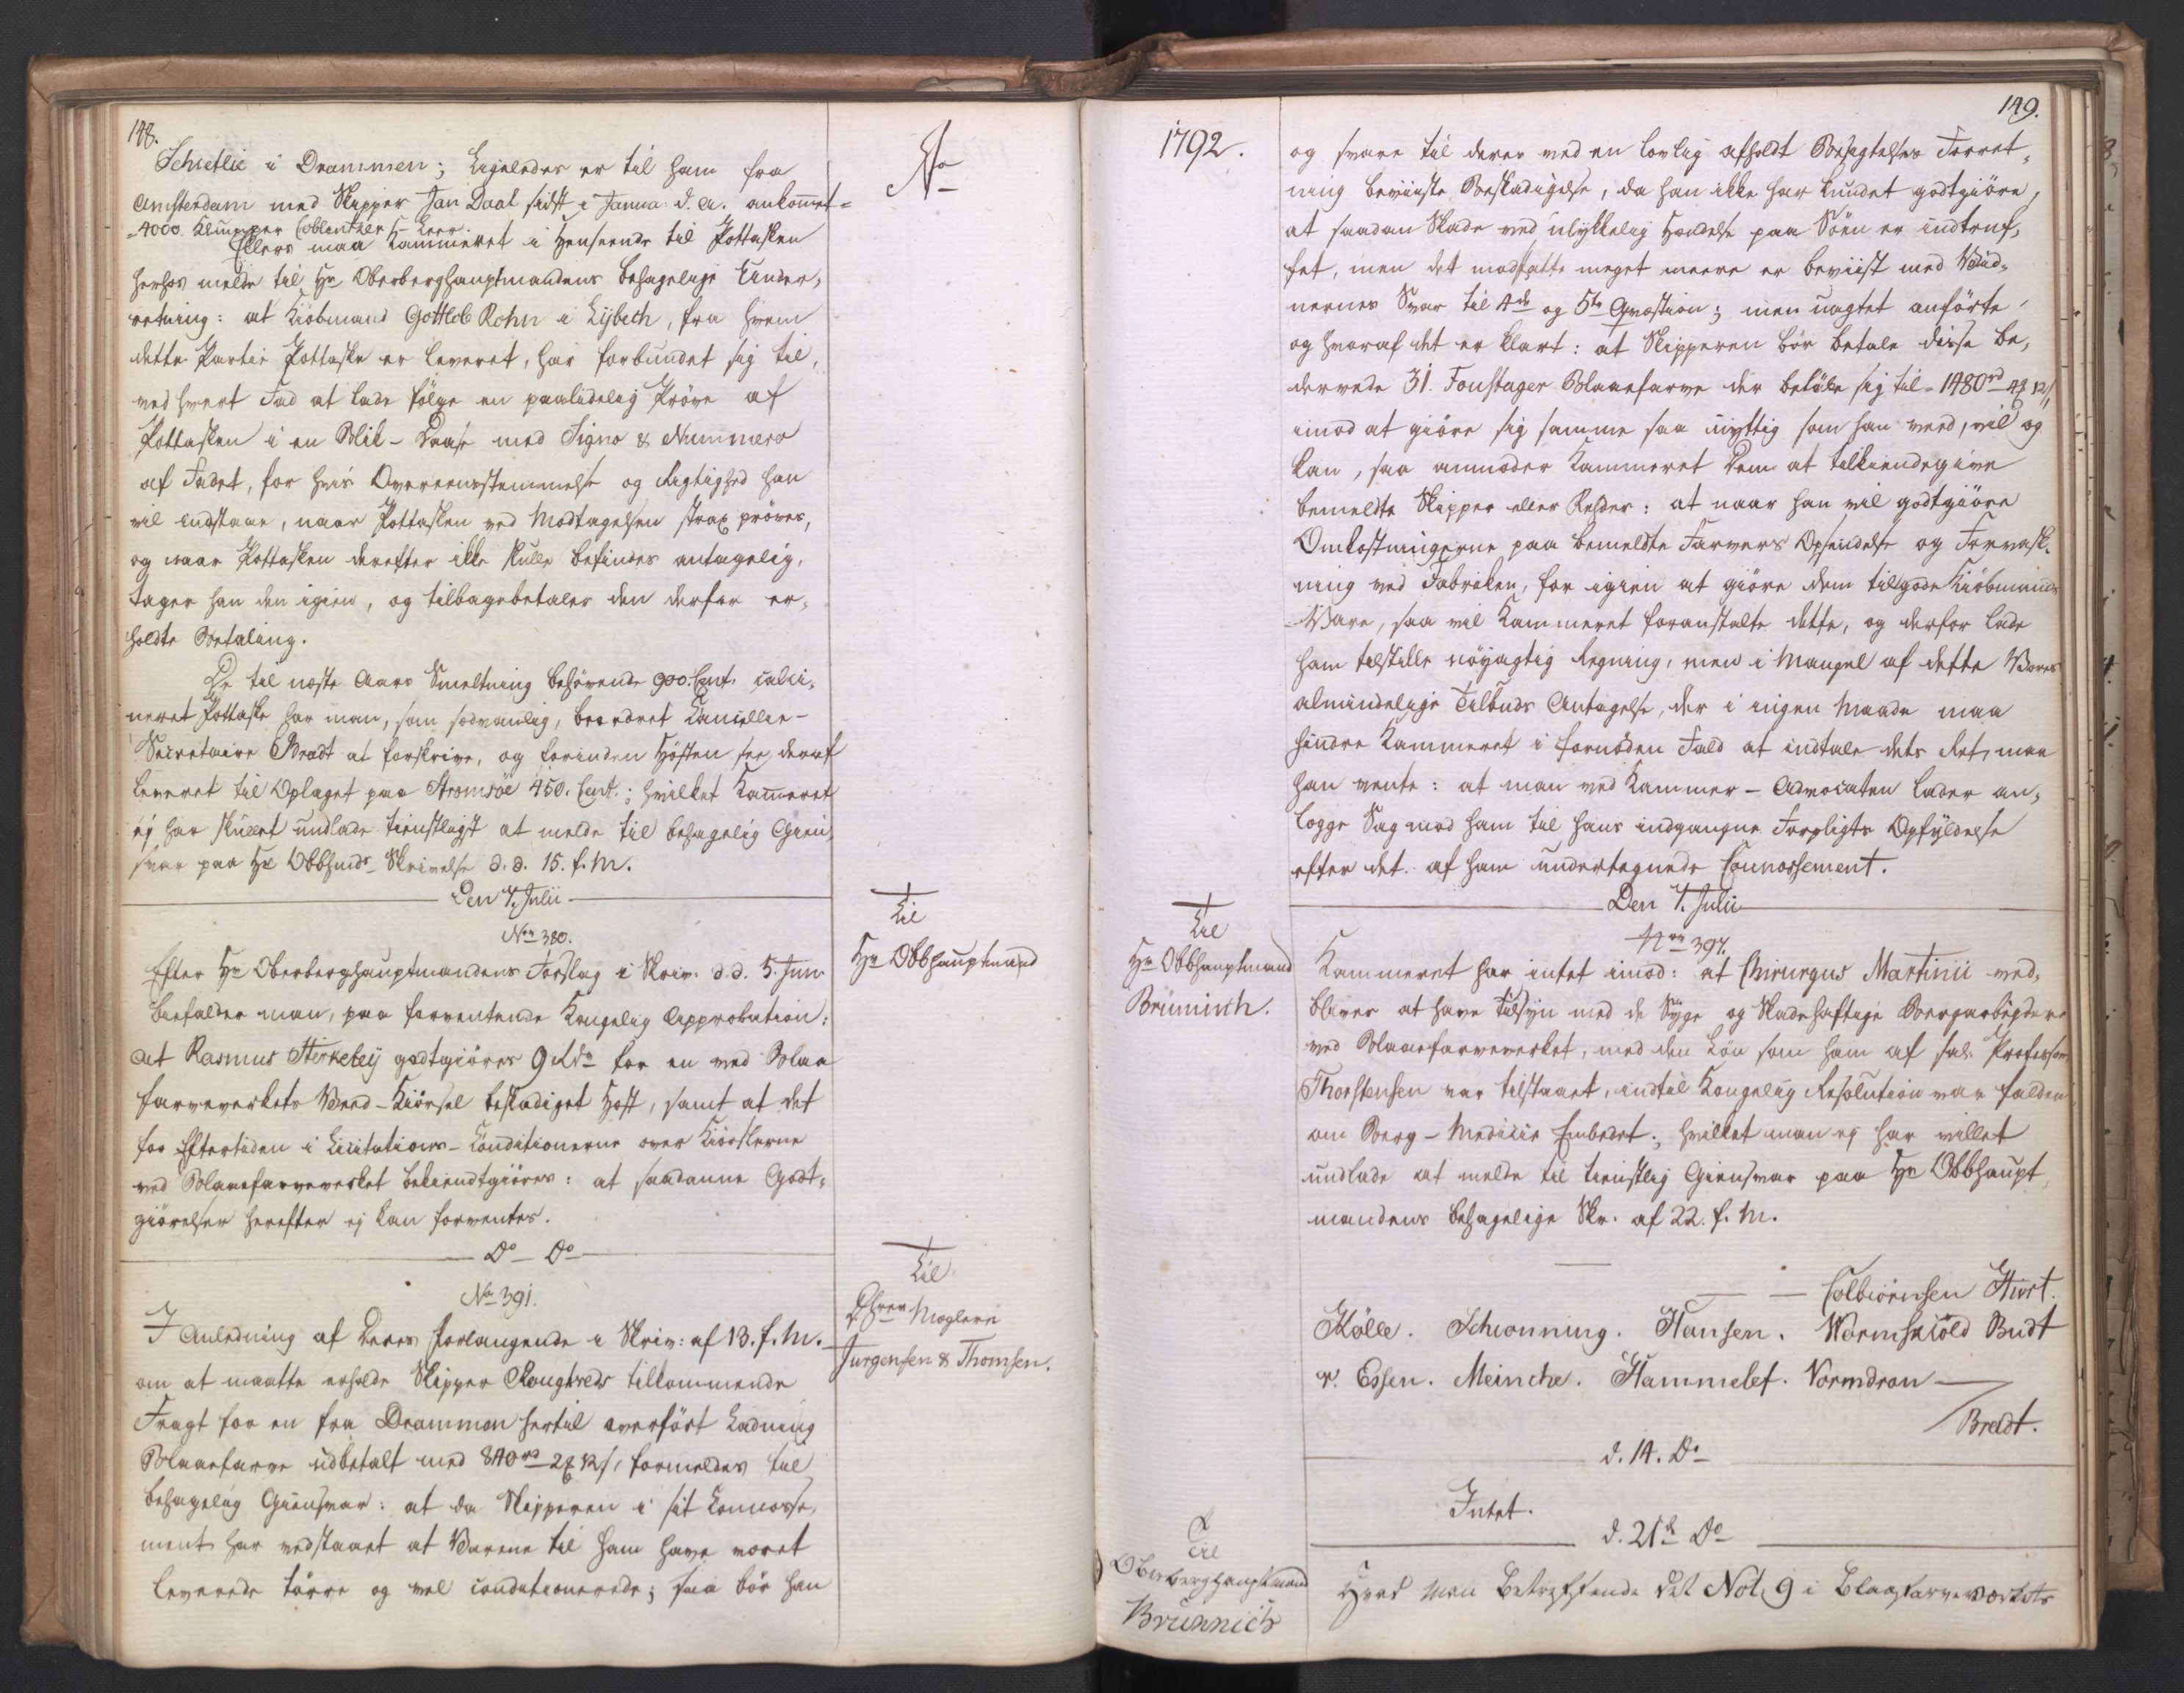 148.
Schietlie i Drammen; Ligeledes er til ham fra
Amsterdam med Skipper Jan Daal sidst i Janua: d. A. ankommet
4000 Klumper Coblentzer Leer.
Ellers maa Kammeret i Henseende til Pottasken
herhos melde til Hr Oberberghauptmandens behagelige Under,
retning: at Kiöbmand Gottlob Rohn i Lybech, fra hvem
dette Partie Pottaske er leveret, har forbundet sig til,
ved hvert Fad at lade fölge en paalidelig Pröve af
Pottasken i en Blik-Daase med Signo & Nummero
af Fadet, for hvis Overeensstemmelse og Rigtighed han
vil indstaae, naar Pottasken ved Modtagelsen strax pröves,
og naar Pottasken derefter ikke skulle befindes antagelig,
tager han den igien, og tilbagebetaler den derfor er,
holdte Betaling.
De til næste Aars Smeltning behövende 900. Cent. calci,
neret Pottaske har man, som sædvanlig, beordret Cancellie-
Secretaire Bradt at forskrive, og forinden Hösten see deraf
leveret til Oplaget paa Strømsöe 450. Cent.; hvilket Kammeret
ej har skullet undlade tienstligst at melde til behagelig Gien,
svar paa Hr Obbhmds Skrivelse d.d. 15. f. M.
Den 7. Julii
No 380.
Til
Hr Obbhauptmand
Efter Hr Oberberghauptmandens Forslag i Skriv: d.d. 5. Jun.
biefalder man, paa forventende Kongelig Approbation:
at Rasmus Sterkebÿ godtgiöres 9 Rdr for en ved Blaa
farveverkets Veed-Kiörsel beskadiget Hest, samt at det
for Eftertiden i Licitations-Conditionerne over Kiörslerne
ved Blaaefarveverket bekiendtgiöres: at saadanne Godt,
giörelser herefter ej kan forventes.
Do - Do
No 391.
Til
Dhrer Mæglere
Jurgensen & Thomsen.
I Anledning af Deres forlangende i Skriv: af 13. f. M.
om at maatte erholde Skipper Rougtveds tilkommende
Fragt for en fra Drammen hertil overfört Ladning
Blaaefarve udbetalt med 840 rd 2 12 s, formeldes til
behagelig Giensvar: at da Skipperen i sit Connosse,
ment har vedstaaet at Varene til ham have været
leverede törre og vel conditionerede; saa bör han
1792.
149.
og svare til deres ved en lovlig afholdt Besigtelses Forret,
ning beviiste Beskadigelse, da han ikke har kundet godtgiöre,
at saadan Skade ved ulykkelig Hændelse paa Söen er indtruf,
fet, men det modsatte meget meere er beviist med Mænd,
nernes Svar til 4de og 5te Qvæstion; men uagtet anförte,
og hvoraf det er klart: at Skipperen bör betale disse be,
dervede 31. Foustager Blaaefarve der belöbe sig til 1480 rd 4 12 s
imod at giöre sig samme saa nyttig som han veed, vil og
kan, saa anmoder Kammeret Dem at tilkiendegive
bemeldte Skipper eller Reder: at naar han vil godtgiöre
Omkostningerne paa bemeldte Farvers Opsendelse og Forvask,
ning ved Fabriken, for igien at giöre dem til gode Kiöbmands
Vare, saa vil Kammeret foranstalte dette, og derfor lade
ham tilstille nöyagtig Regning, men i Mangel af dette Vores
almindelige Tilbuds Antagelse, der i ingen Maade maa
hindre Kammeret i fornöden Fald at indtale dets Ret, maa
han vente: at man ved Kammer-Advocaten lader an,
lægge Sag mod ham til hans indgangne Forpligts Opfyldelse
efter det af ham undertegnede Connossement.
Den 7. Julii
No 397.
Til
Hr Obbhauptmand
Brünnich.
Kammeret har intet imod: at Chirurgus Martinii ved,
bliver at have Tilsyn med de Syge og Skadehaftige Bergarbejdere
ved Blaaefarveverket, med den Lön som ham af sal. Professor
Thorstensen var tilstaaet, indtil Kongelig Resolution var falden
om Berg-Medicie Embedet; hvilket man ej har villet
undlade at melde til tienstlig Giensvar paa Hr Obbhaupt,
mandens behagelige Skr. af 22. f. M.
Colbiörnsen Hiort.
Kölle. Schionning. Hansen. Wormskiöld Budt
v. Essen. Meinche. Hammelef. Normdron
Bradt.
d. 14. Do
Intet.
d. 21de Do
Til
Oberberghauptmand
Brünnich
Hvad man betreffende det Not 9 i Blaafarveverkets